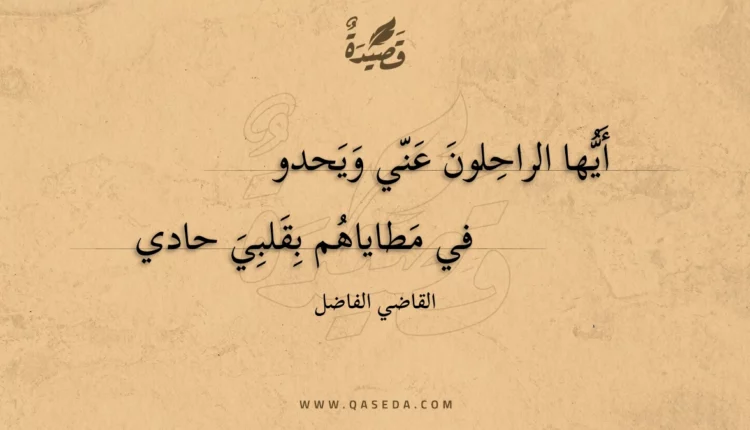 قَصِيدَةٌ
أَيُّها الراحِلونَ عَنّي وَيَحدو
في مَطاياهُم بِقَلبِيَ حادي
القاضي الفاضل
WWW.QASEDA.COM